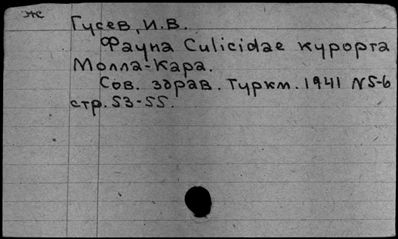 Ж
Гусев, И.В.
Фауна Culicidae курорта
Молла-Кара.
Сов. здрав. Туркм. 1941 №5-6
стр. 53-55.